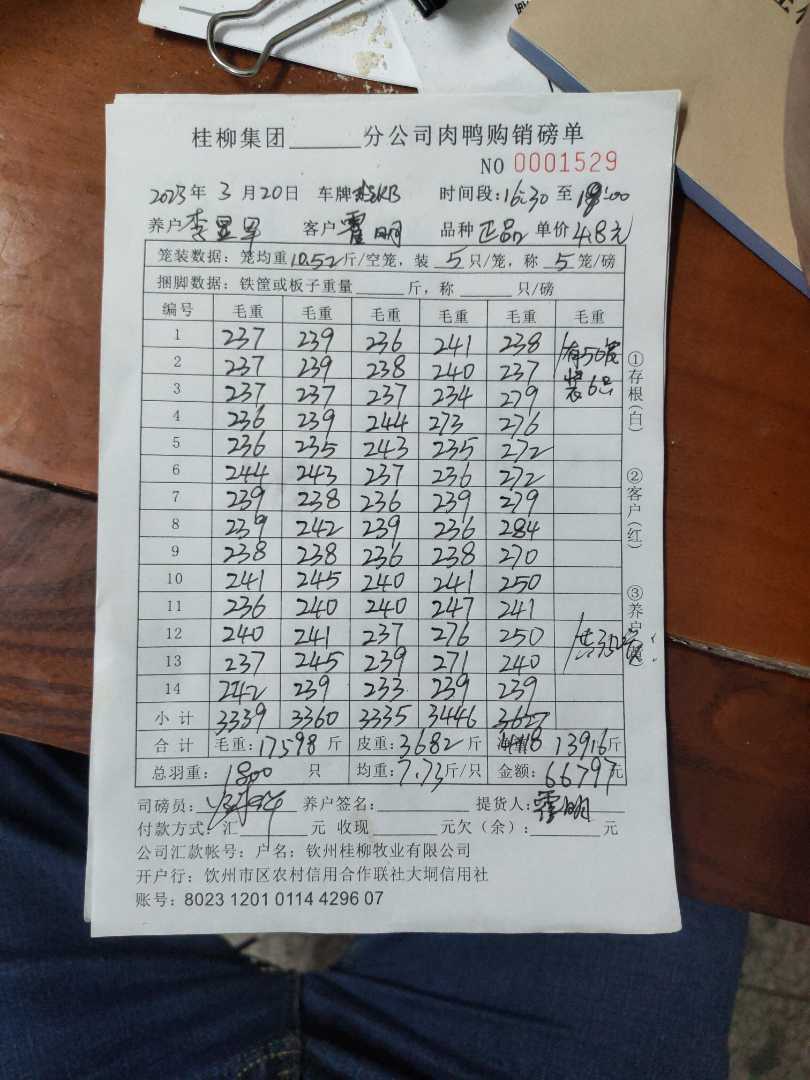 桂柳集团______分公司肉鸭购销磅单
NO 0001529
2023年 3月20日 车牌 KB 时间段:16:30 至 18:00
养户 李显军 客户 霍明 品种 正品 单价 4.8元
笼装数据:笼均重10.52斤/空笼,装 5 只/笼,称 5 笼/磅
捆脚数据:铁筐或板子重量______斤,称______只/磅
编号 毛重 毛重 毛重 毛重 毛重 毛重
1 237 239 236 241 238 有50笼
2 237 239 238 240 237 装6只
3 237 237 237 234 279
4 236 239 244 273 276
5 236 235 243 235 272
6 244 243 237 236 272
7 239 238 236 239 279
8 239 242 239 236 284
9 238 238 236 238 270
10 241 245 240 241 250
11 236 240 240 247 241
12 240 241 237 276 250 共352
13 237 245 239 271 240
14 242 239 233 239 239
小计 3339 3360 3335 3446 3627
合计 毛重:17598斤 皮重:3682斤 13916斤
总羽重:1800 只 均重:7.73斤/只 金额:66797元
司磅员: 养户签名:______ 提货人:霍明
付款方式:汇______元 收现______元欠(余):______元
公司汇款帐号:户名:钦州桂柳牧业有限公司
开户行:钦州市区农村信用合作联社大垌信用社
账号:8023 1201 0114 4296 07
①存根(白)
②客户(红)
③养户